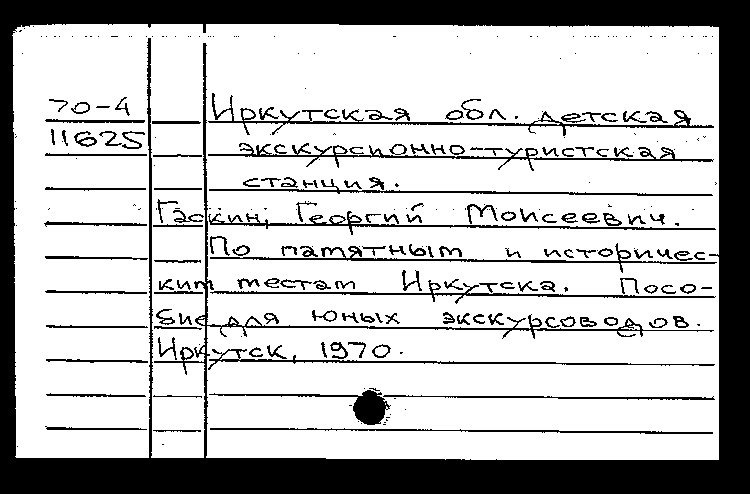 70-4 Иркутская обл. детская
11625 экскурсионно-туристская
станция.
Гаскин, Георгий Моисеевич.
По памятным и историчес-
ким местам Иркутска. Посо-
бие для юных экскурсоводов.
Иркутск, 1970.